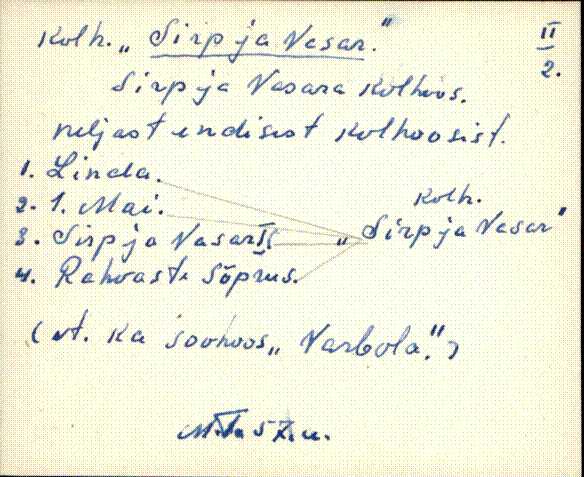 Kolh. „Sirp ja Vasar.”
II
2.
Sirp ja Vasara kolhoos.
neljast endisest kolhoosist.
1. Linda.
2. 1. Mai.
3. Sirp ja Vasar II
4. Rahvaste Sõprus.
kolh.
„Sirp ja Vasar”
(vt. ka sovhoos „Varbola.”)